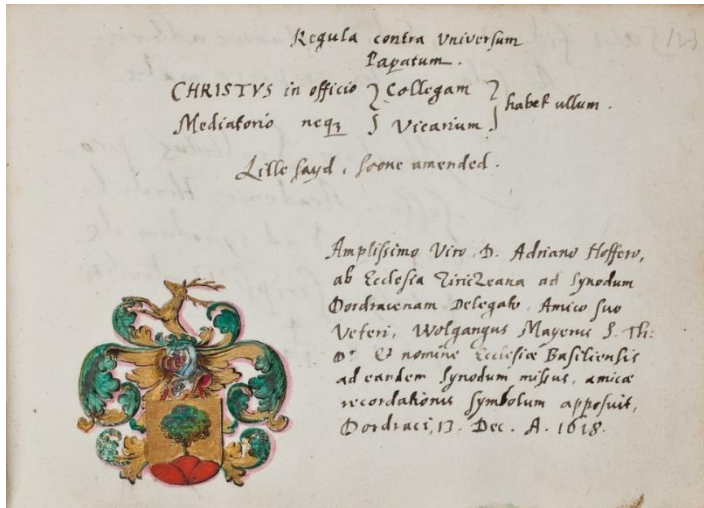 Regula contra Universum
Papatum.
CHRISTVS in officio } Collegam } habet ullum.
Mediatorio neq3 } Vicarium }
Lille sayd, soone amended.
Amplissimo Viro, D. Adriano Hoffero,
ab Ecclesia Ziriczeana ad Synodum
Dordracenam Delegato, Amico suo
Veteri, Wolgangus Mayerus S. Th:
Dr. Et nomine Ecclesiæ Basiliensis
ad eandem Synodum missus, amicæ
recordationis symbolum apposuit,
Dordraci, 17. Dec. A. 1618.